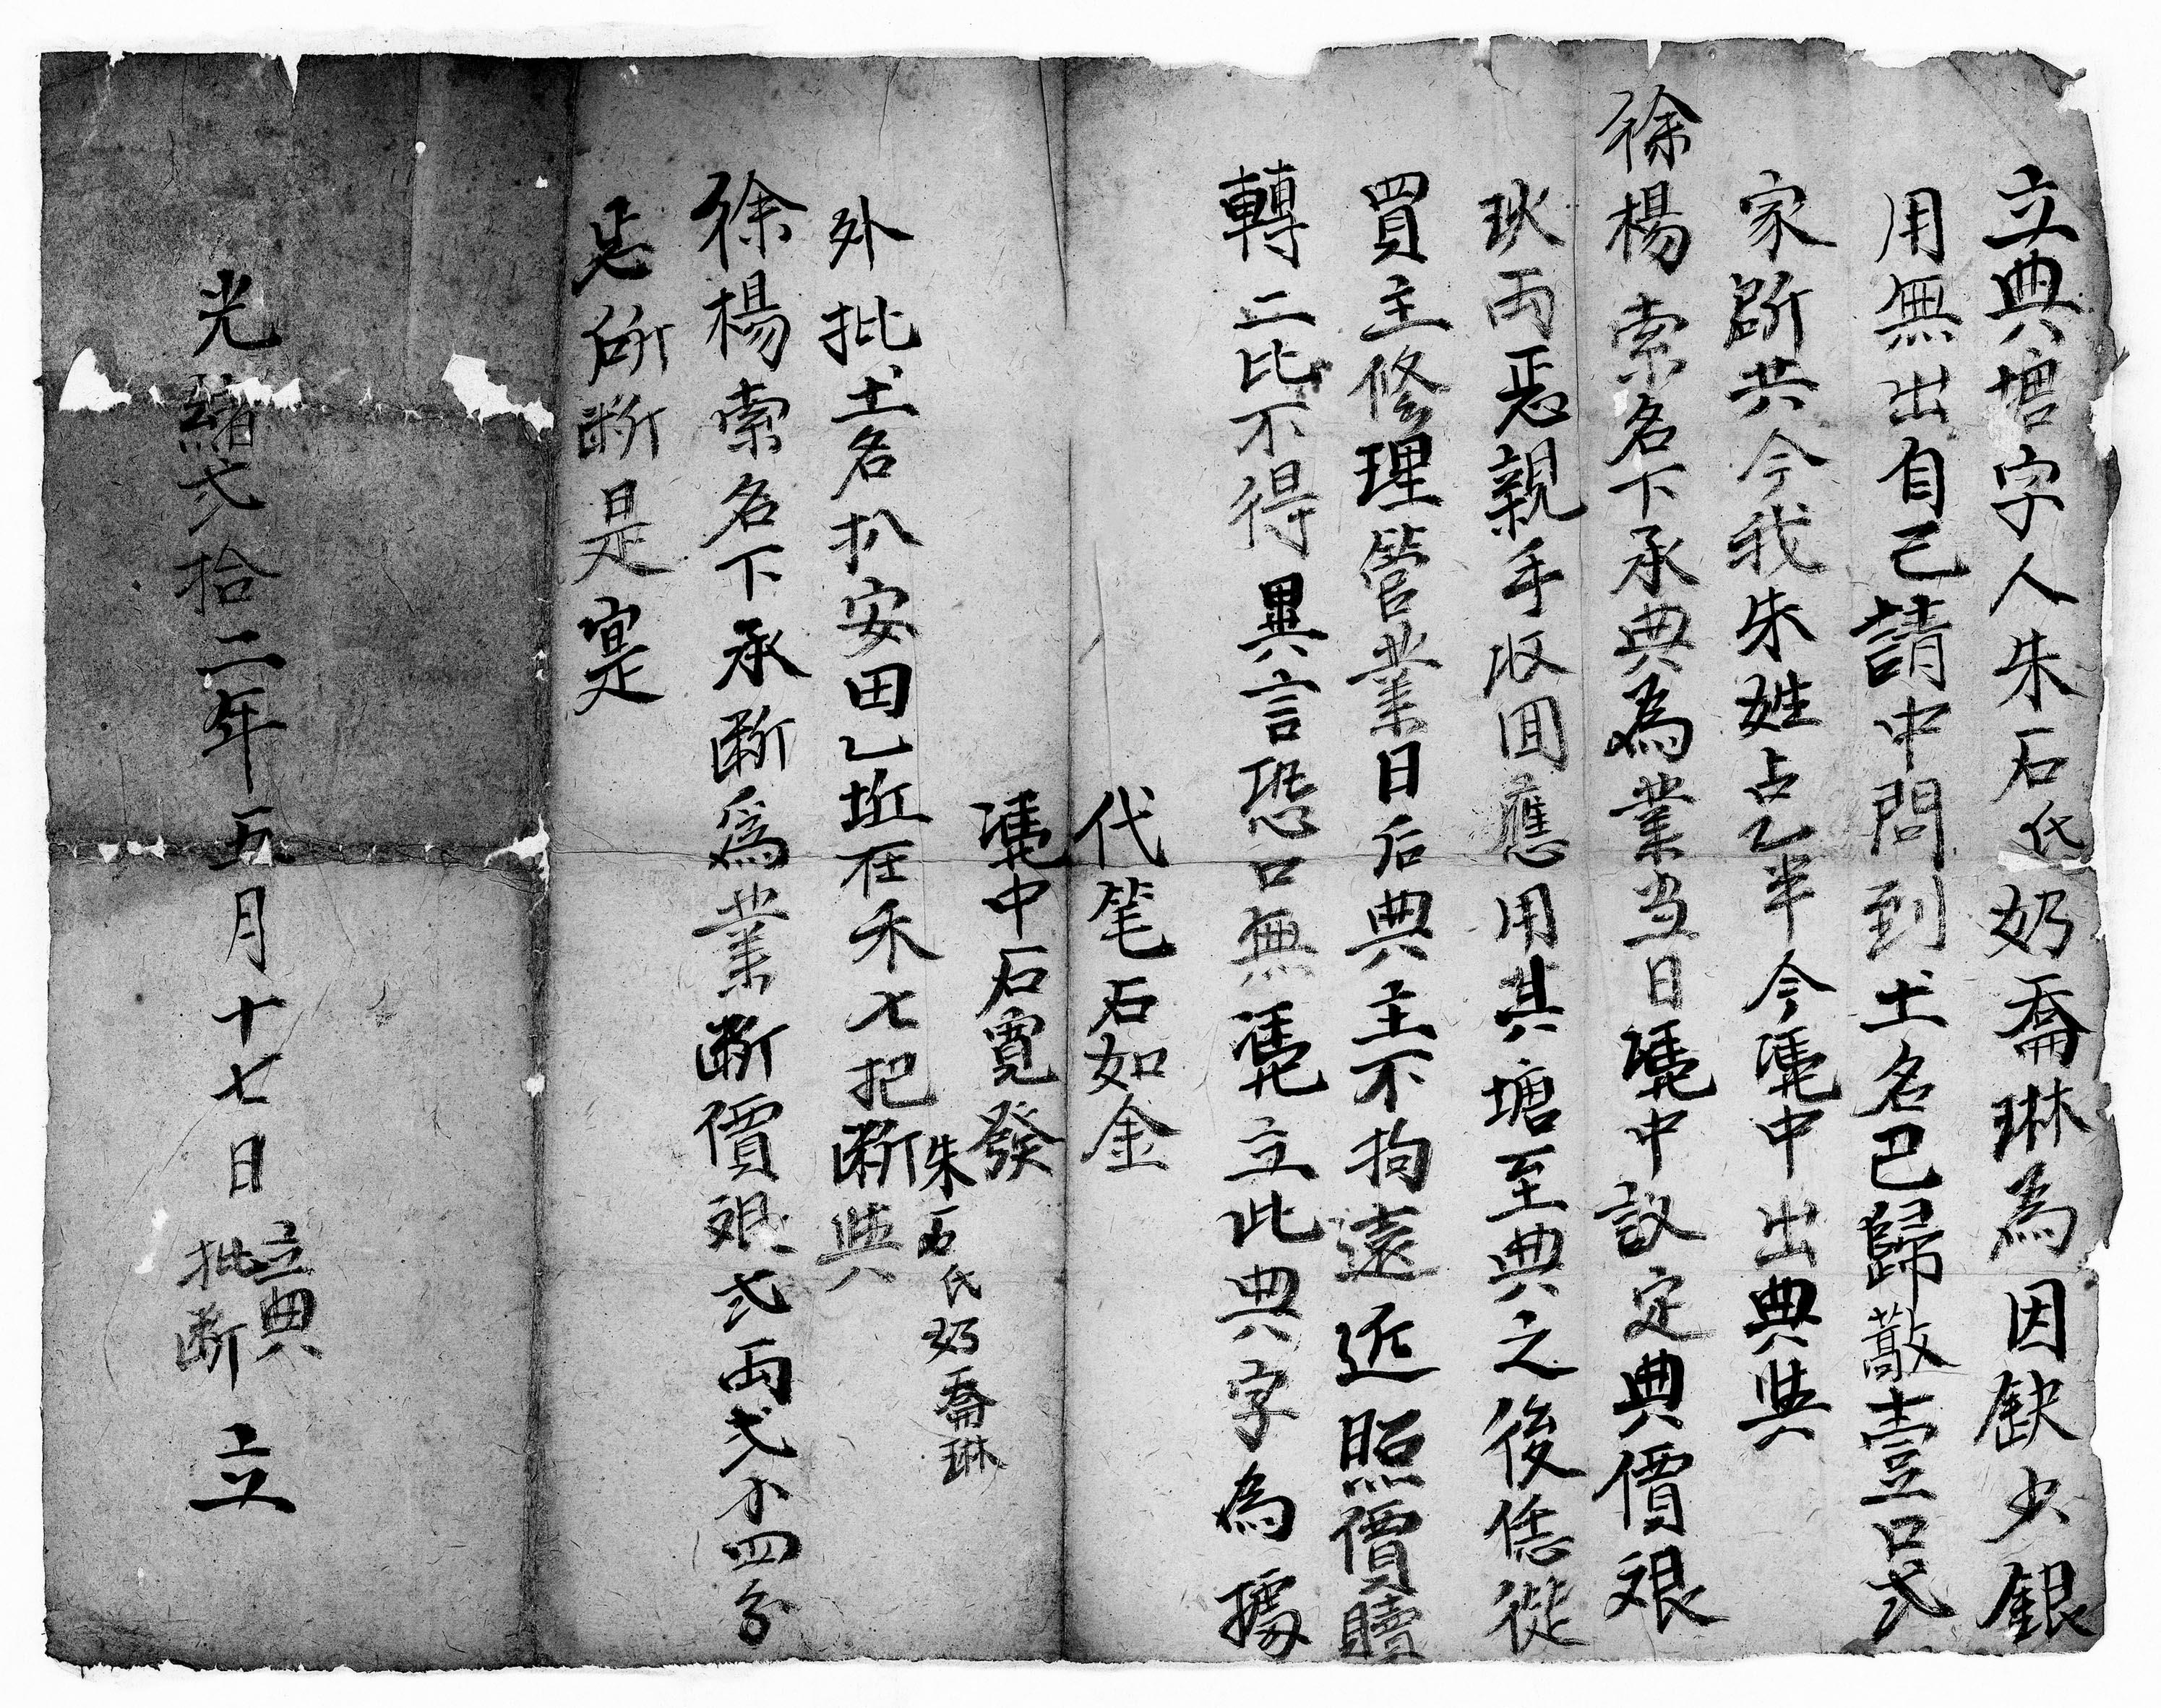 立典塘字人朱石氏奶喬琳為因缺少銀
用無出自己請中問到土名巴歸 壹口弍
家所共今我朱姓占乙半今凴中出典與
徐楊索名下承典為業当日凴中議定典價艰
弍両 親手收囬應用其塘至典之後恁從
買主修理管業日后典主不拘遠近照價贖
轉二比不得異言恐口無凴立此典字為據
代笔石如金
凴中石寬發
朱石氏奶喬琳
外批土名扒安田乙坵在禾七把断與
徐楊索名下承断為業断價艰弍両弍小四分
是所断是寔
光緒弍拾二年五月十七日立典批断立